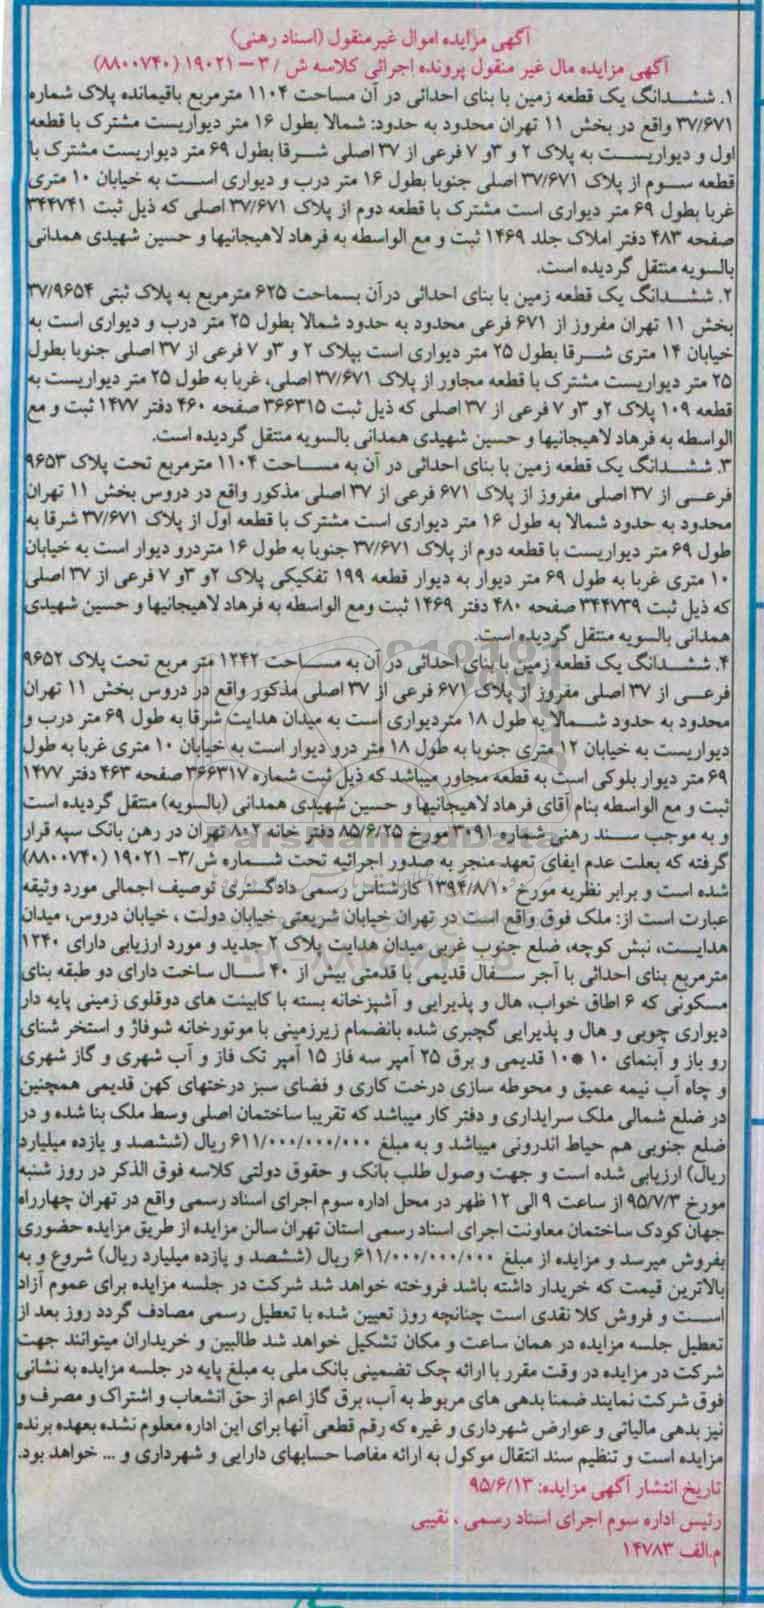 آگهی مزایده اموال غیرمنقول (اسناد رهنی)
آگهی مزایده مال غیر منقول پرونده اجرائی کلاسه ش / ۳ – ۱۹۰۲۱ (۸۸۰۰۷۴۰)
۱. ششدانگ یک قطعه زمین با بنای احداثی در آن مساحت ۱۱۰۴ مترمربع باقیمانده پلاک شماره
۳۷/۶۷۱ واقع در بخش ۱۱ تهران محدود به حدود: شمالا بطول ۱۶ متر دیواریست مشترک با قطعه
اول و دیواریست به پلاک ۲ و ۳و ۷ فرعی از ۳۷ اصلی شرقا بطول ۶۹ متر دیواریست مشترک با
قطعه سوم از پلاک ۳۷/۶۷۱ اصلی جنوبا بطول ۱۶ متر درب و دیواری است به خیابان ۱۰ متری
غربا بطول ۶۹ متر دیواری است مشترک با قطعه دوم از پلاک ۳۷/۶۷۱ اصلی که ذیل ثبت ۳۴۴۷۴۱
صفحه ۴۸۳ دفتر املاک جلد ۱۴۶۹ ثبت و مع الواسطه به فرهاد لاهیجانیها و حسین شهیدی همدانی
بالسویه منتقل گردیده است.
۲. ششدانگ یک قطعه زمین با بنای احداثی درآن بمساحت ۶۲۵ مترمربع به پلاک ثبتی ۳۷/۹۶۵۴
بخش ۱۱ تهران مفروز از ۶۷۱ فرعی محدود به حدود شمالا بطول ۲۵ متر درب و دیواری است به
خیابان ۱۴ متری شرقا بطول ۲۵ متر دیواری است بپلاک ۲ و ۳و ۷ فرعی از ۳۷ اصلی جنوبا بطول
۲۵ متر دیواریست مشترک با قطعه مجاور از پلاک ۳۷/۶۷۱ اصلی، غربا به طول ۲۵ متر دیواریست به
قطعه ۱۰۹ پلاک ۲و ۳و ۷ فرعی از ۳۷ اصلی که ذیل ثبت ۳۶۶۳۱۵ صفحه ۴۶۰ دفتر ۱۴۷۷ ثبت و مع
الواسطه به فرهاد لاهیجانیها و حسین شهیدی همدانی بالسویه منتقل گردیده است.
۳. ششدانگ یک قطعه زمین با بنای احداثی در آن به مساحت ۱۱۰۴ مترمربع تحت پلاک ۹۶۵۳
فرعی از ۳۷ اصلی مفروز از پلاک ۶۷۱ فرعی از ۳۷ اصلی مذکور واقع در دروس بخش ۱۱ تهران
محدود به حدود شمالا به طول ۱۶ متر دیواری است مشترک با قطعه اول از پلاک ۳۷/۶۷۱ شرقا به
طول ۶۹ متر دیواریست با قطعه دوم از پلاک ۳۷/۶۷۱ جنوبا به طول ۱۶ متردرو دیوار است به خیابان
۱۰ متری غربا به طول ۶۹ متر دیوار به دیوار قطعه ۱۹۹ تفکیکی پلاک ۲و ۳و ۷ فرعی از ۳۷ اصلی
که ذیل ثبت ۳۴۴۷۳۹ صفحه ۴۸۰ دفتر ۱۴۶۹ ثبت ومع الواسطه به فرهاد لاهیجانیها و حسین شهیدی
همدانی بالسویه منتقل گردیده است.
۴. ششدانگ یک قطعه زمین با بنای احداثی در آن به مساحت ۱۲۴۲ متر مربع تحت پلاک ۹۶۵۲
فرعی از ۳۷ اصلی مفروز از پلاک ۶۷۱ فرعی از ۳۷ اصلی مذکور واقع در دروس بخش ۱۱ تهران
محدود به حدود شمالا به طول ۱۸ متردیواری است به میدان هدایت شرقا به طول ۶۹ متر درب و
دیواریست به خیابان ۱۲ متری جنوبا به طول ۱۸ متر درو دیوار است به خیابان ۱۰ متری غربا به طول
۶۹ متر دیوار بلوکی است به قطعه مجاور میباشد که ذیل ثبت شماره ۳۶۶۳۱۷ صفحه ۴۶۳ دفتر ۱۴۷۷
ثبت و مع الواسطه بنام آقای فرهاد لاهیجانیها و حسین شهیدی همدانی (بالسویه) منتقل گردیده است
و به موجب سند رهنی شماره ۳۰۹۱ مورخ ۸۵/۶/۲۵ دفتر خانه ۸۰۲ تهران در رهن بانک سپه قرار
گرفته که بعلت عدم ایفای تعهد منجر به صدور اجرائیه تحت شماره ش/۳- ۱۹۰۲۱ (۸۸۰۰۷۴۰)
شده است و برابر نظریه مورخ ۱۳۹۴/۸/۱۰ کارشناس رسمی دادگستری توصیف اجمالی مورد وثیقه
عبارت است از: ملک فوق واقع است در تهران خیابان شریعتی خیابان دولت ، خیابان دروس، میدان
هدایت، نبش کوچه، ضلع جنوب غربی میدان هدایت پلاک ۲ جدید و مورد ارزیابی دارای ۱۲۴۰
مترمربع بنای احداثی با آجر سفال قدیمی با قدمتی بیش از ۴۰ سال ساخت دارای دو طبقه بنای
مسکونی که ۶ اطاق خواب، هال و پذیرایی و آشپزخانه بسته با کابینت های دوقلوی زمینی پایه دار
دیواری چوبی و هال و پذیرایی گچبری شده بانضمام زیرزمینی با موتورخانه شوفاژ و استخر شنای
رو باز و آبنمای ۱۰*۱۰ قدیمی و برق ۲۵ آمپر سه فاز ۱۵ آمپر تک فاز و آب شهری و گاز شهری
و چاه آب نیمه عمیق و محوطه سازی درخت کاری و فضای سبز درختهای کهن قدیمی همچنین
در ضلع شمالی ملک سرایداری و دفتر کار میباشد که تقریبا ساختمان اصلی وسط ملک بنا شده و در
ضلع جنوبی هم حیاط اندرونی میباشد و به مبلغ ۶۱۱/۰۰۰/۰۰۰/۰۰۰ ریال (ششصد و یازده میلیارد
ریال) ارزیابی شده است و جهت وصول طلب بانک و حقوق دولتی کلاسه فوق الذکر در روز شنبه
مورخ ۹۵/۷/۳ از ساعت ۹ الی ۱۲ ظهر در محل اداره سوم اجرای اسناد رسمی واقع در تهران چهارراه
جهان کودک ساختمان معاونت اجرای اسناد رسمی استان تهران سالن مزایده از طریق مزایده حضوری
بفروش میرسد و مزایده از مبلغ ۶۱۱/۰۰۰/۰۰۰/۰۰۰ ریال (ششصد و یازده میلیارد ریال) شروع و به
بالاترین قیمت که خریدار داشته باشد فروخته خواهد شد شرکت در جلسه مزایده برای عموم آزاد
است و فروش کلا نقدی است چنانچه روز تعیین شده با تعطیل رسمی مصادف گردد روز بعد از
تعطیل جلسه مزایده در همان ساعت و مکان تشکیل خواهد شد طالبین و خریداران میتوانند جهت
شرکت در مزایده در وقت مقرر با ارائه چک تضمینی بانک ملی به مبلغ پایه در جلسه مزایده به نشانی
فوق شرکت نمایند ضمنا بدهی های مربوط به آب، برق گاز اعم از حق انشعاب و اشتراک و مصرف و
نیز بدهی مالیاتی و عوارض شهرداری و غیره که رقم قطعی آنها برای این اداره معلوم نشده بعهده برنده
مزایده است و تنظیم سند انتقال موکول به ارائه مفاصا حسابهای دارایی و شهرداری و ... خواهد بود.
تاریخ انتشار آگهی مزایده: ۹۵/۶/۱۳
رئیس اداره سوم اجرای اسناد رسمی ، نقیبی
م.الف ۱۴۷۸۳